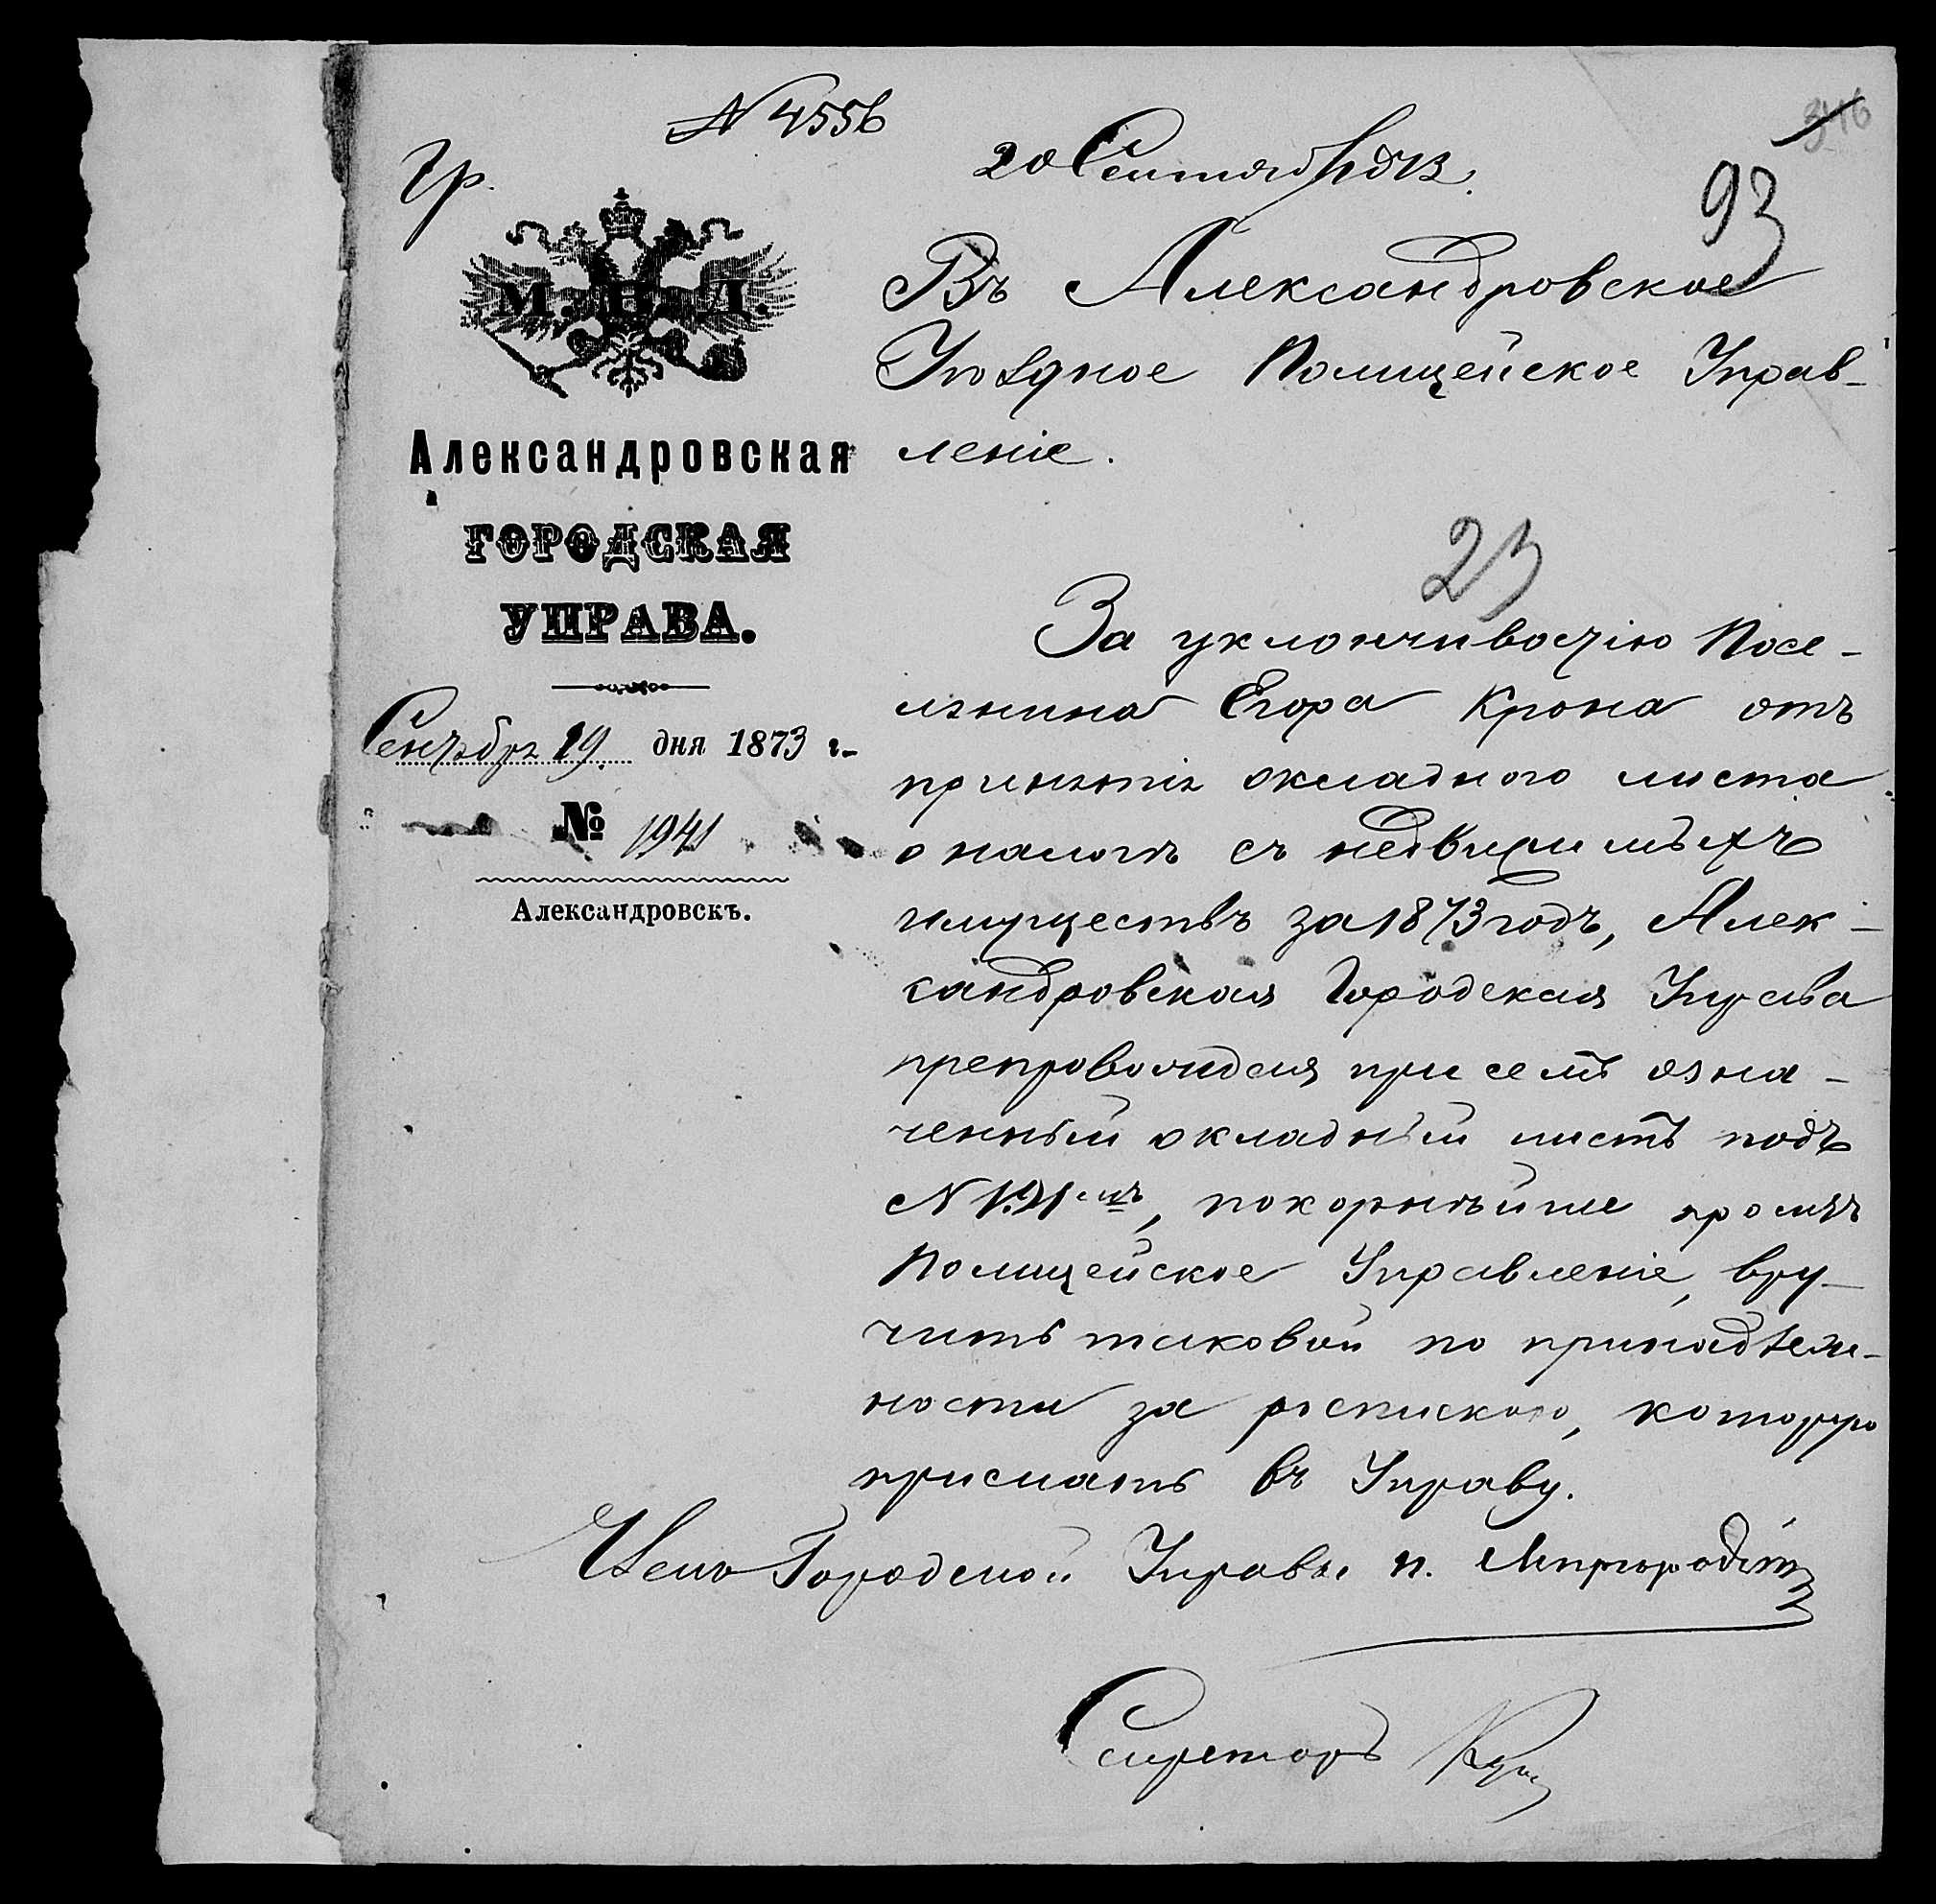 № 4556
Гр.
20 Сентября 73.
346
93
М. В. Д.
Александровская
ГОРОДСКАЯ
УПРАВА.
Сентября 19 дня 1873 г.
№ 1941
Александровскъ.
Въ Александровское
Уѣздное Полицейское Управ-
леніе.
23
За уклончивостію Посе-
лянина Егора Крона отъ
принятія окладного листа
о налогѣ съ недвижимыхъ
имуществъ за 1873 годъ, Алек-
сандровская Городская Управа
препровождая при семъ озна-
ченный окладный листъ подъ
№ 191мъ, покорнѣйше проситъ
Полицейское Управленіе, вру-
чить таковой по принадлеж-
ности за роспискою, которую
прислать въ Управу.
Членъ Городской Управы П. Миргородскій
Секретарь